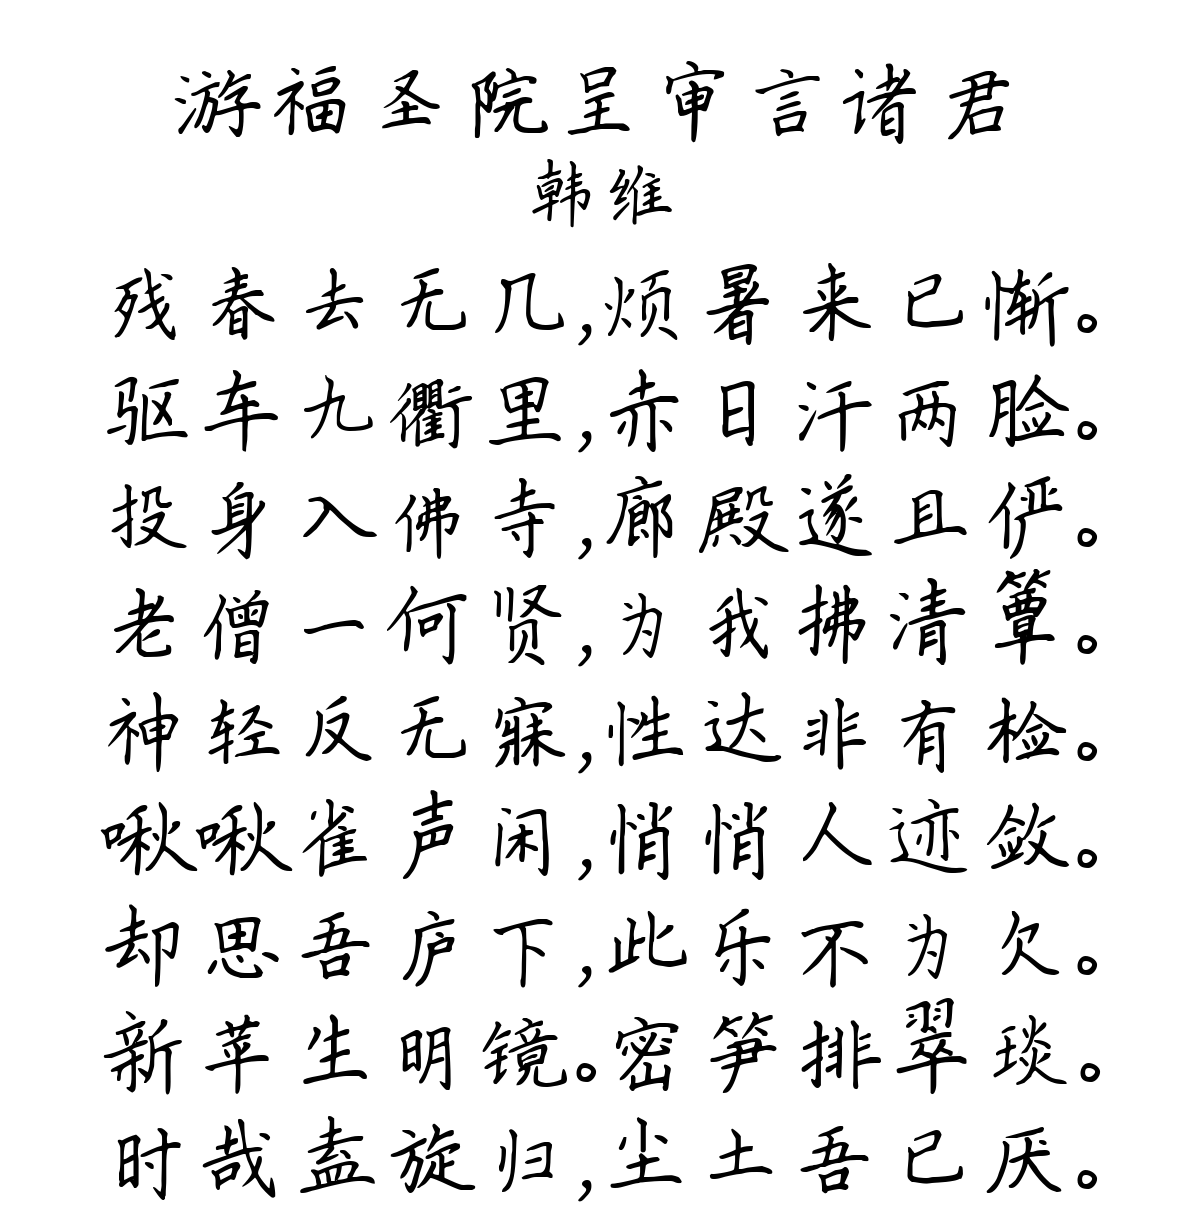 游福圣院呈审言诸君
韩维
残春去无几,烦暑来已惭。
驱车九衢里,赤日汗两脸。
投身入佛寺,廊殿遂且俨。
老僧一何贤,为我拂清簟。
神轻反无寐,性达非有检。
啾啾雀声闲,悄悄人迹敛。
却思吾庐下,此乐不为欠。
新苹生明镜。密笋排翠琰。
时哉盍旋归,尘土吾已厌。